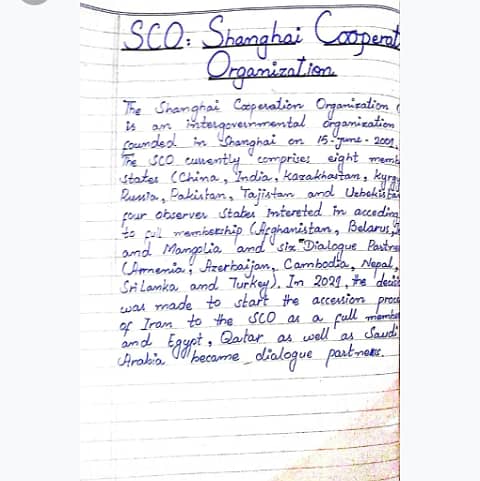 SCO: Shanghai Cooperat
Organization
The Shanghai Cooperation Organization (
is an intergovernmental organization
founded in Shanghai on 15-June-2001.
The SCO currently comprises eight memb
states (China, India, Kazakhastan, Kyrgy
Russia, Pakistan, Tajistan and Uzbekista
four observer states Intereted in acceding
to full membership (Afghanistan, Belarus,
and Mangolia and six "Dialogue Partne
(Armenia, Azerbaijan, Cambodia, Nepal,
Sri Lanka and Turkey). In 2021, the decisi
was made to start the accession proce
of Iran to the SCO as a full member
and Egypt, Qatar as well as Saudi
Arabia became dialogue partners.